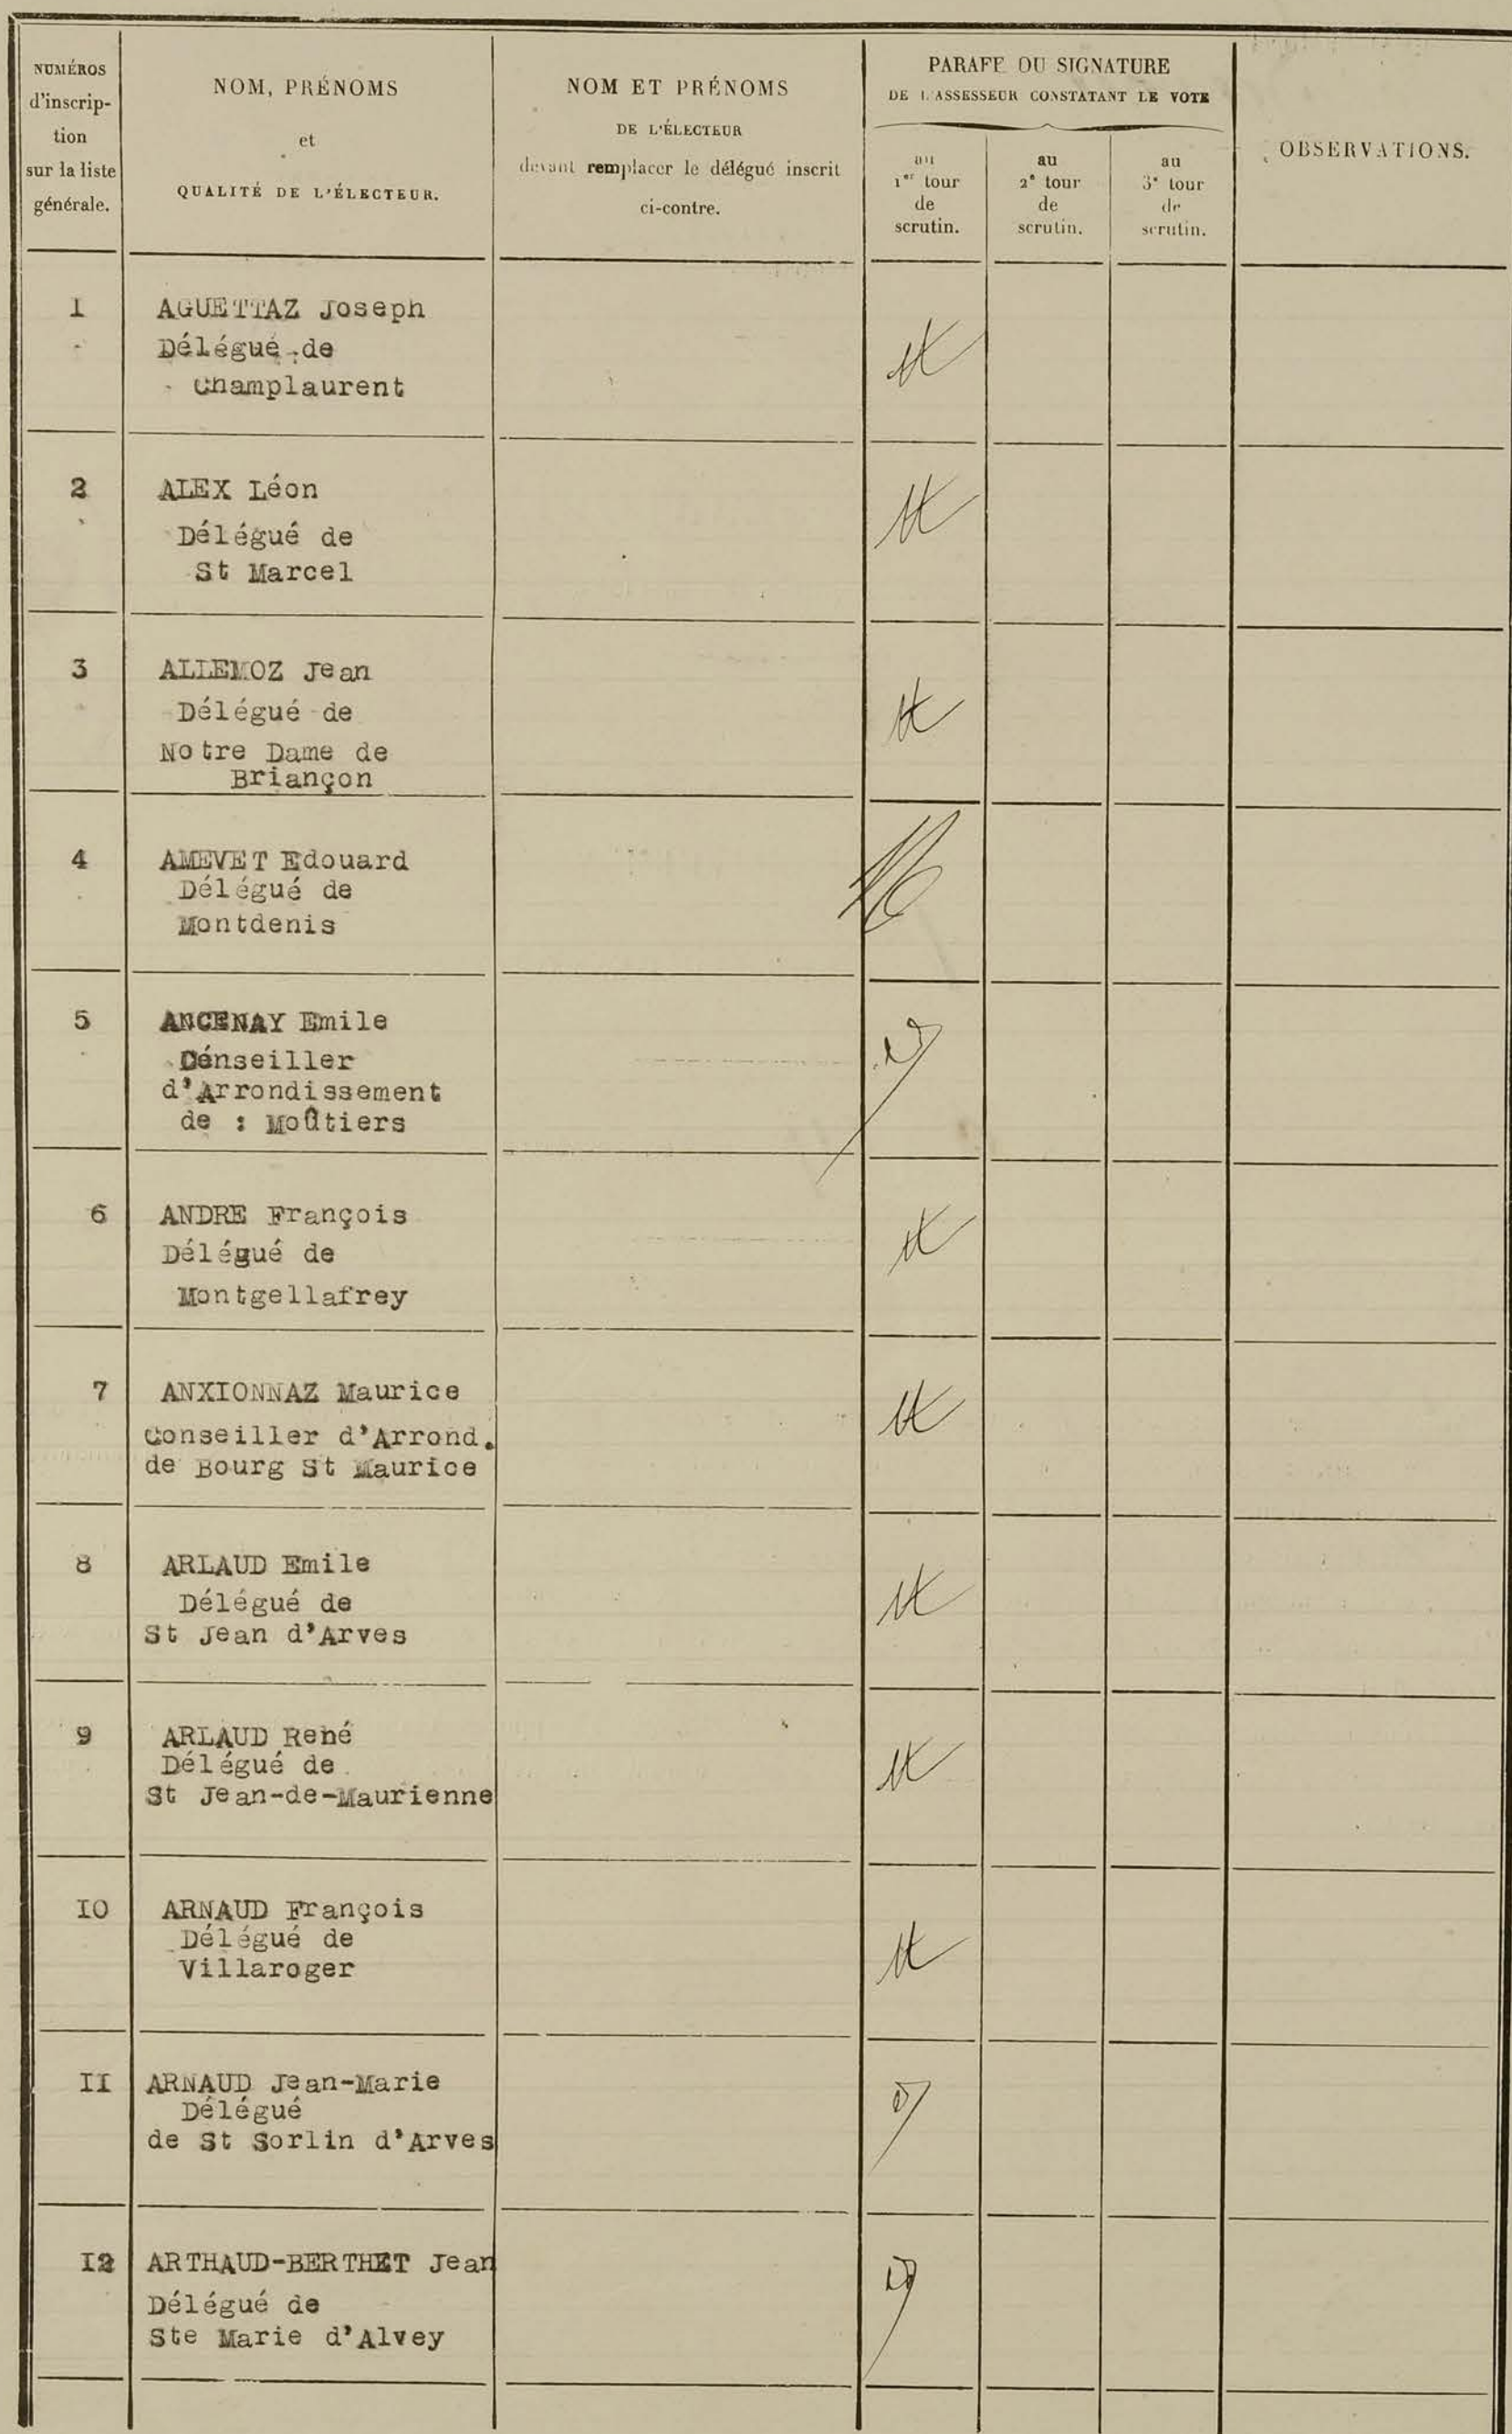 NUMÉROS
d'inscrip-
tion
sur la liste
générale.
NOM, PRÉNOMS
et
QUALITÉ DE L'ÉLECTEUR.
NOM ET PRÉNOMS
DE L'ÉLECTEUR
devant remplacer le délégué inscrit
ci-contre.
PARAFE OU SIGNATURE
DE L'ASSESSEUR CONSTATANT LE VOTE
au
1er tour
de
scrutin.
au
2e tour
de
scrutin.
au
3e tour
de
scrutin.
OBSERVATIONS.
1 AGUETTAZ Joseph
Délégué de
Champlaurent
2 ALEX Léon
Délégué de
St Marcel
3 ALLEMOZ Jean
Délégué de
Notre Dame de
Briançon
4 AMEVET Edouard
Délégué de
Montdenis
5 ANCENAY Emile
Cénseiller
d'Arrondissement
de : Moûtiers
6 ANDRE François
Délégué de
Montgellafrey
7 ANXIONNAZ Maurice
Conseiller d'Arrond.
de Bourg St Maurice
8 ARLAUD Emile
Délégué de
St Jean d'Arves
9 ARLAUD René
Délégué de
St Jean-de-Maurienne
I0 ARNAUD François
Délégué de
Villaroger
II ARNAUD Jean-Marie
Délégué
de St Sorlin d'Arves
I2 ARTHAUD-BERTHET Jean
Délégué de
Ste Marie d'Alvey